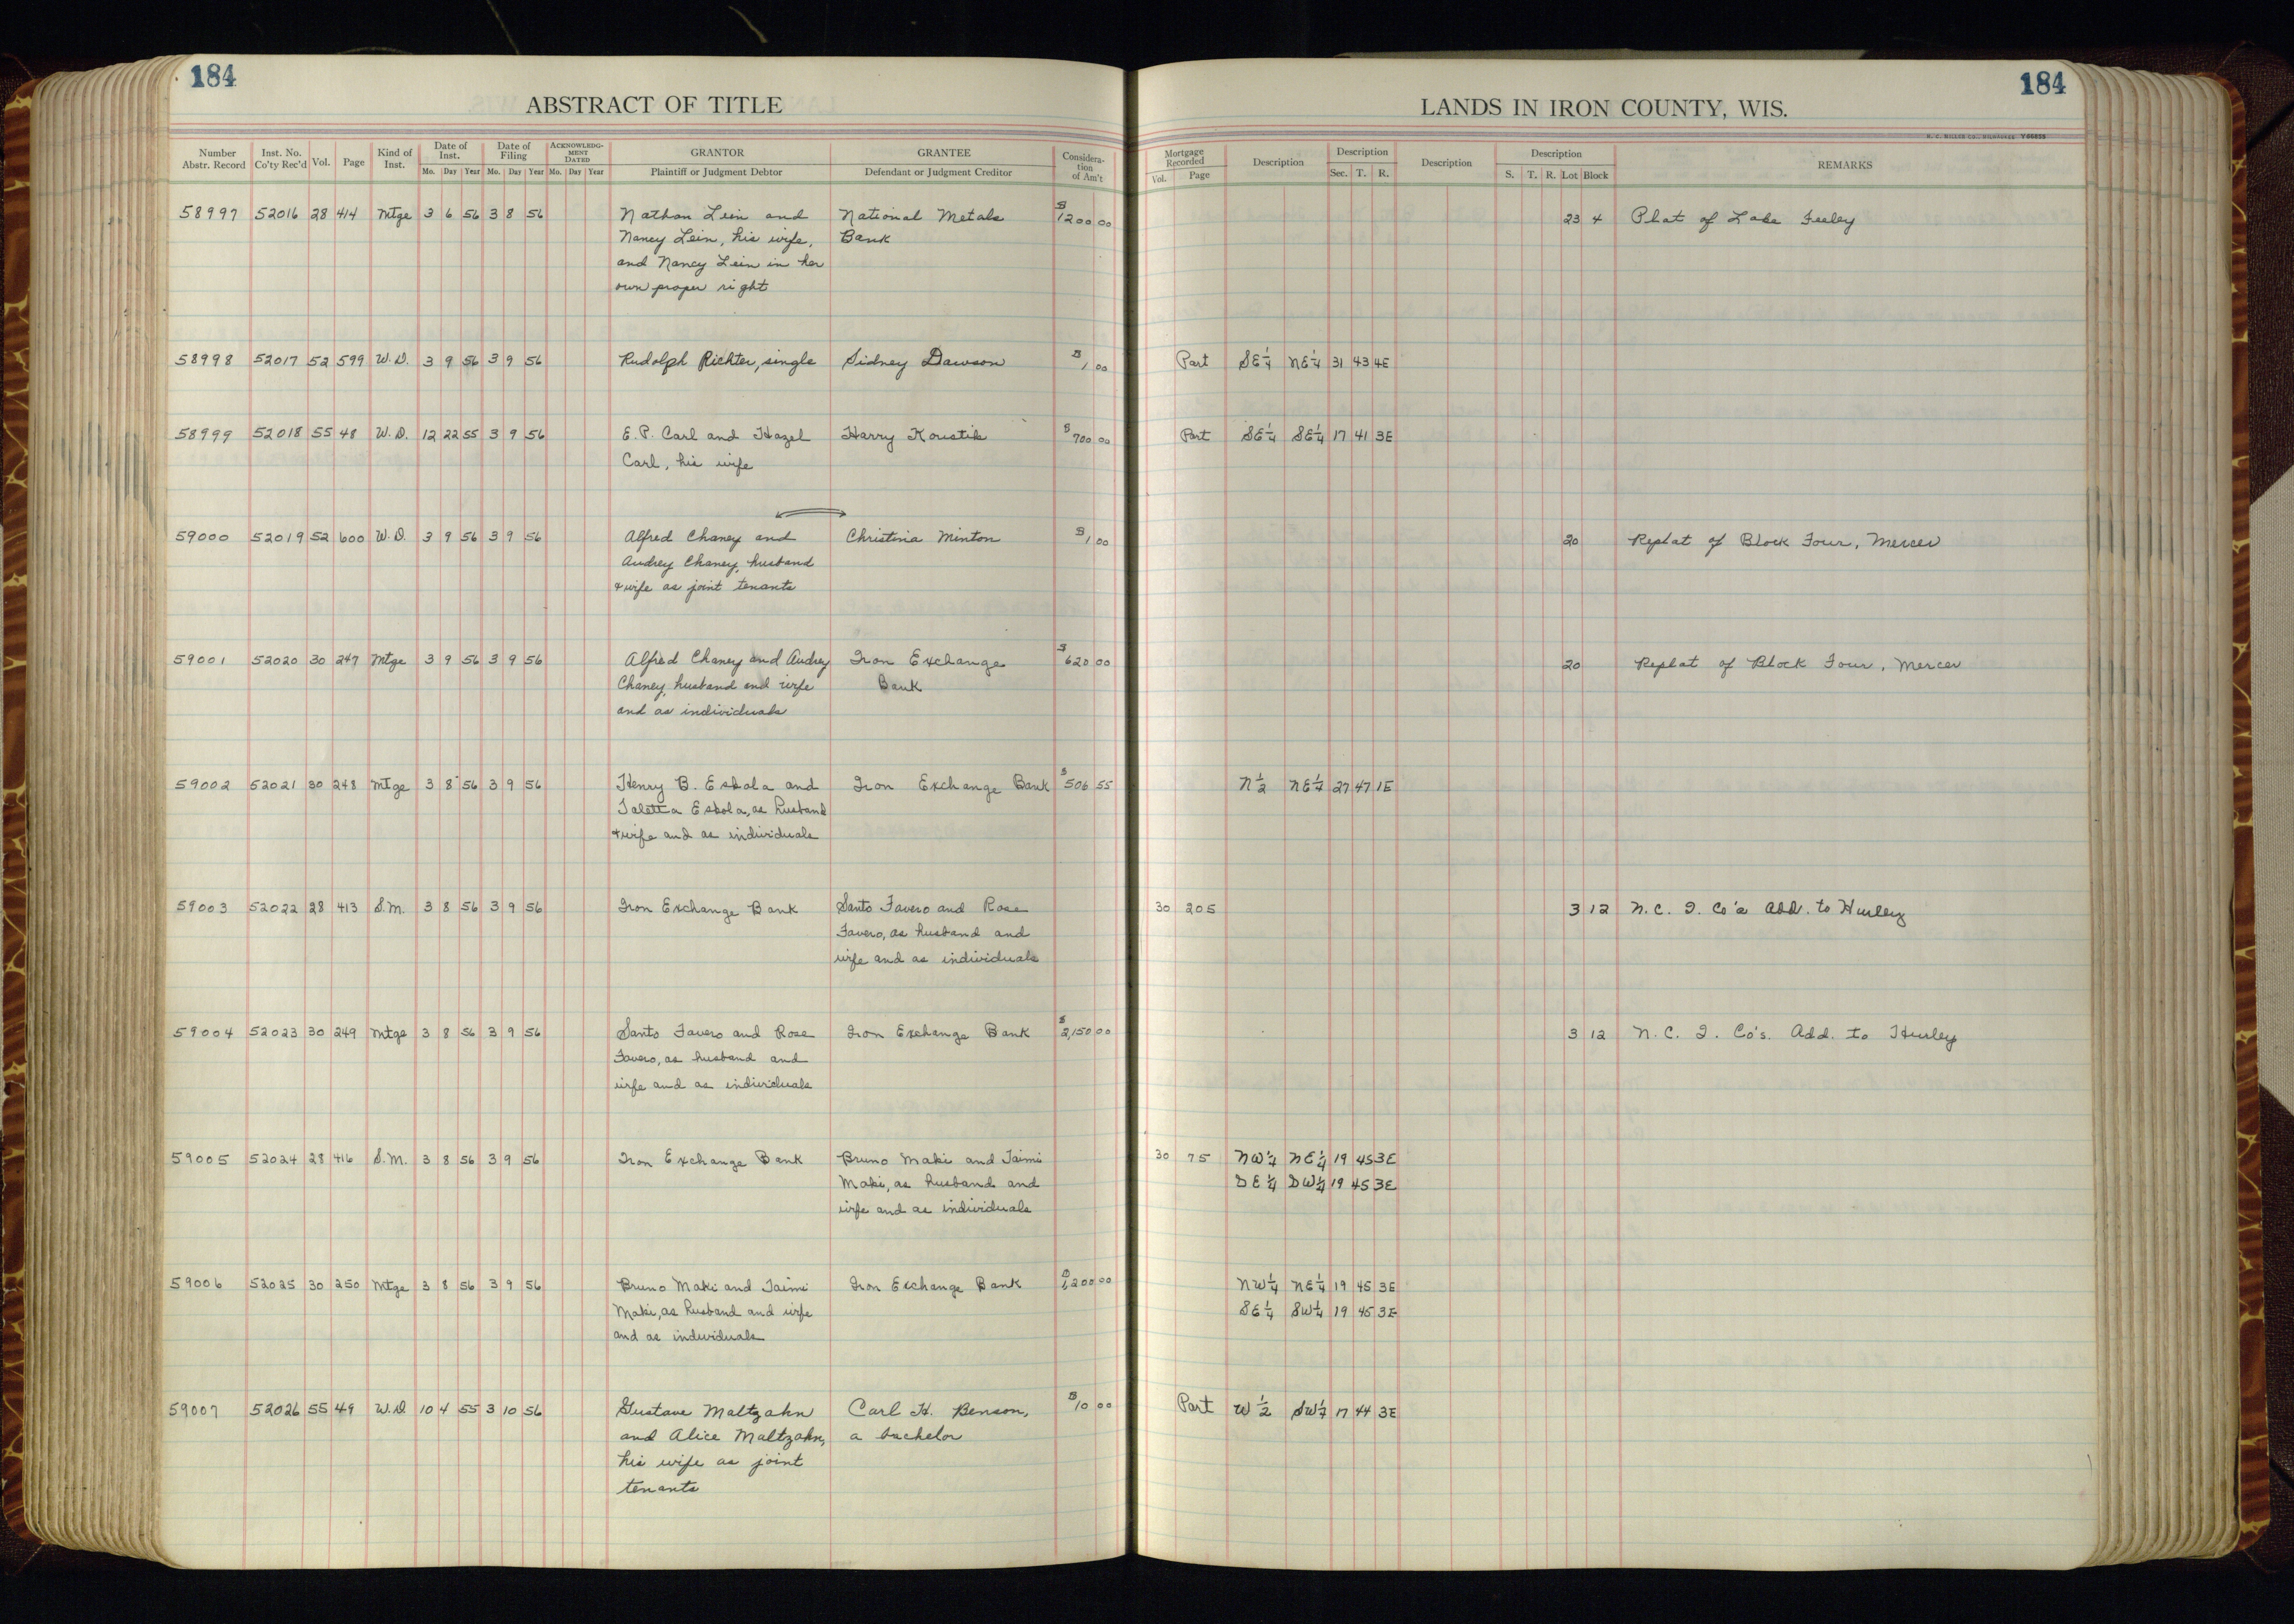 184
184
ABSTRACT OF TITLE
LANDS IN IRON COUNTY, WIS.
Number Abstr. Record Inst. No. Co'ty Rec'd Vol. Page Kind of Inst. Date of Inst. Mo. Day Year Date of Filing Mo. Day Year ACKNOWLEDG-MENT DATED Mo. Day Year GRANTOR Plaintiff or Judgment Debtor GRANTEE Defendant or Judgment Creditor Considera-tion of Am't
Mortgage Recorded Vol. Page Description Description Sec. T. R. Description Description S. T. R. Lot Block REMARKS
58997 52016 28 414 Mtge 3 6 56 3 8 56 Nathan Lein and National Metals $1200 00 23 4 Plat of Lake Feeley
Nancy Lein, his wife, Bank
and Nancy Lein in her
own proper right
58998 52017 52 599 W.D. 3 9 56 3 9 56 Rudolph Richter, single Sidney Dawson $1 00 Part SE¼ NE¼ 31 43 4E
58999 52018 55 48 W.D. 12 22 55 3 9 56 E.P. Carl and Hazel Harry $700 00 Part SE¼ SE¼ 17 41 3E
Carl, his wife
59000 52019 52 600 W.D. 3 9 56 3 9 56 Alfred Chaney and Christina Minton $1 00 20 Replat of Block Four, Mercer
Audrey Chaney, husband
& wife as joint tenants
59001 52020 30 247 Mtge 3 9 56 3 9 56 Alfred Chaney and Audrey Iron Exchange $620 00 20 Replat of Block Four, Mercer
Chaney, husband and wife Bank
and as individuals
59002 52021 30 248 Mtge 3 8 56 3 9 56 Henry B. Eskola and Iron Exchange Bank $506 55 N½ NE¼ 27 47 1E
Eskola, as husband
& wife and as individuals
59003 52022 28 413 S.M. 3 8 56 3 9 56 Iron Exchange Bank Santo Favero and Rose 30 205 3 12 N.C. I. Co's Add. to Hurley
Favero, as husband and
wife and as individuals
59004 52023 30 249 Mtge 3 8 56 3 9 56 Santo Favero and Rose Iron Exchange Bank $2,150 00 3 12 N. C. I. Co's. Add. to Hurley
Favero, as husband and
wife and as individuals
59005 52024 28 416 S.M. 3 8 56 3 9 56 Iron Exchange Bank Bruno Maki and Taimi 30 75 NW¼ NE¼ 19 45 3E
Maki, as husband and SE¼ SW¼ 19 45 3E
wife and as individuals
59006 52025 30 250 Mtge 3 8 56 3 9 56 Bruno Maki and Taimi Iron Exchange Bank $1,200 00 NW¼ NE¼ 19 45 3E
Maki, as husband and wife SE¼ SW¼ 19 45 3E
and as individuals
59007 52026 55 49 W.D. 10 4 55 3 10 56 Gustave Maltzahn Carl H. Benson, $10 00 Part W½ SW¼ 17 44 3E
and Alice Maltzahn, a bachelor
his wife as joint
tenants